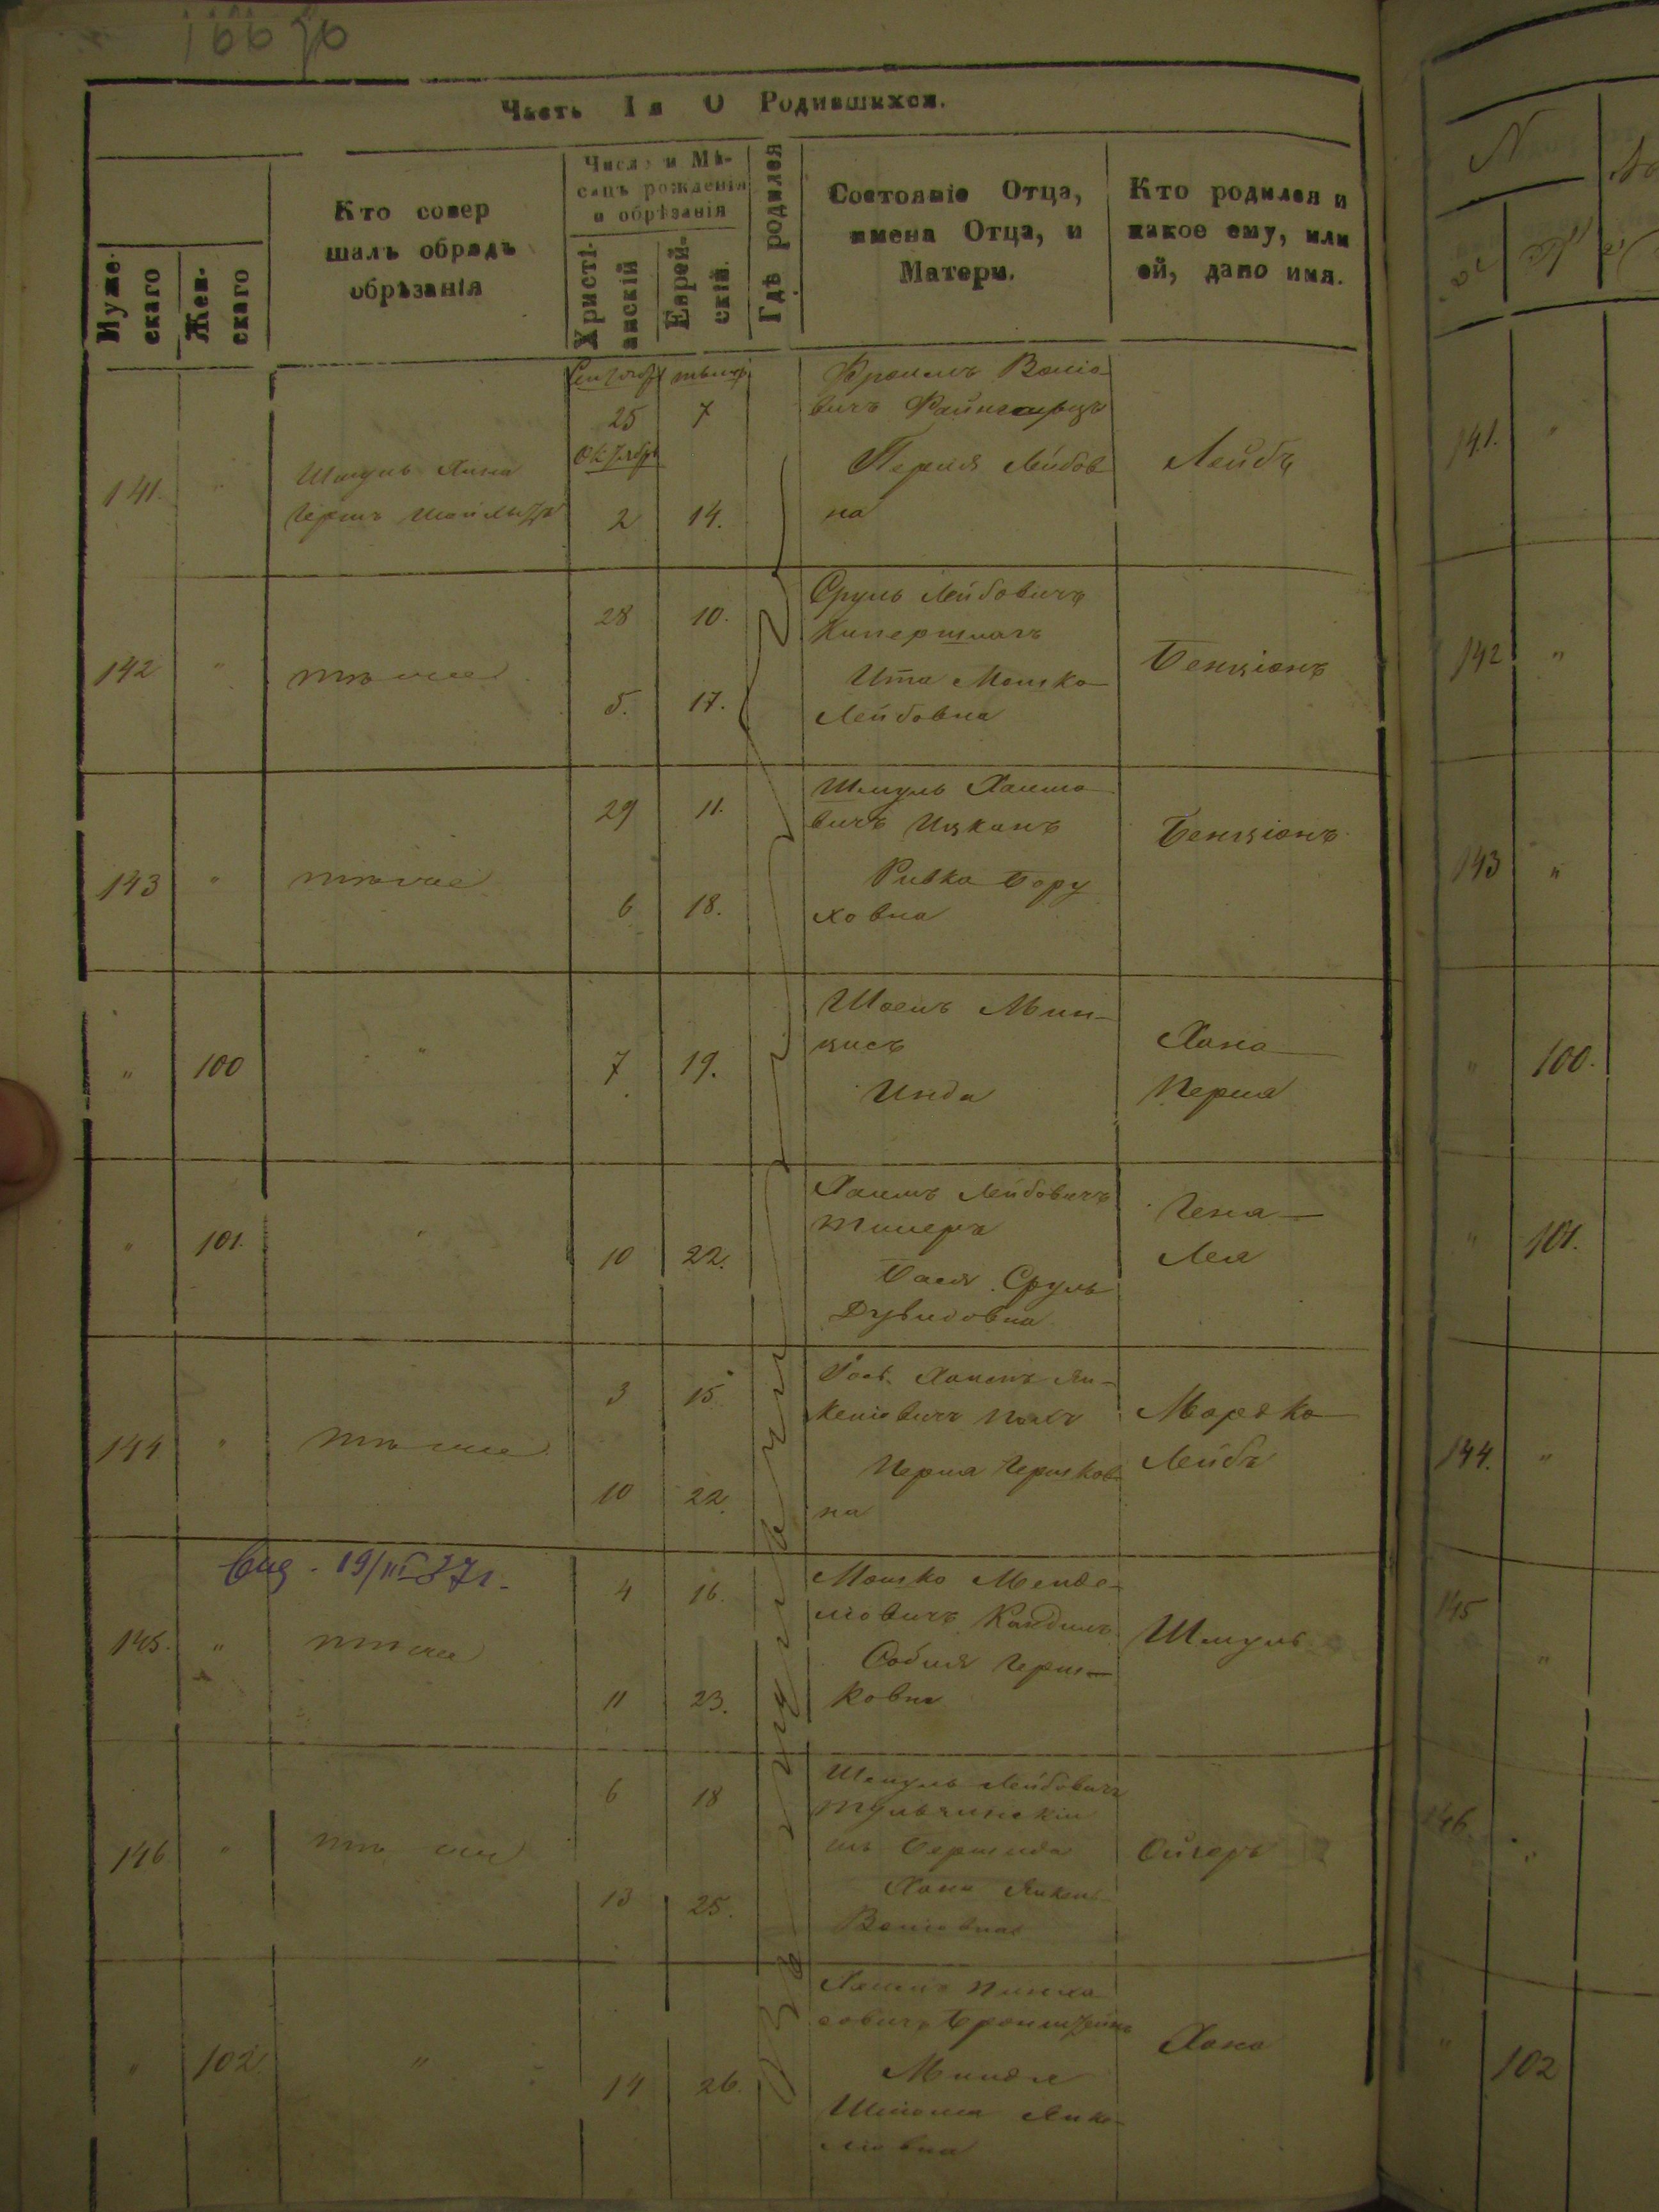 166 об
Часть I я О Родившихся.
Мужескаго
Женскаго
Кто совер
шалъ обрядъ
обрѣзанія
Число и Мѣ-
сяцъ рожденія
и обрѣзанія
Христіанскій
Еврейскій.
Гдѣ родился
Состояніе Отца,
имена Отца, и
Матери.
Кто родился и
какое ему, или
ей, дано имя.
141. "
Шмуль Хина
Гершъ
Сентябрь
25 7
Октябрь
2 14.
Фроимъ
вичъ
Перля Лейбов
на
Лейбъ
142 "
тѣ же
28 10.
5. 17.
Сруль Лейбовичъ
Купершмаръ
Ита Мошко
Лейбовна
Бенціонъ
143 "
тѣ же
29 11.
6 18.
Шмуль Хаимо
вичъ Ицканъ
Ривка Бору
ховна
Бенціонъ
" 100 "
7 19.
Шоелъ Мин-
цисъ
Инда
Хана
Перля
" 101. "
10 22.
Хаимъ Лейбовичъ
Бася Сруль
Дувидовна
Гена
Лея
144 "
тѣ же
3 15
10 22.
Іось Хаимъ Ян-
келіовичъ
Перля Гершков
на
Мордко
Лейбъ
Выд. 19/III 37 г.
145. "
тѣ же
4 16.
11 23.
Мошко Менде-
ліовичъ
Собля Герш-
ковна
Шмуль
146 "
тѣ же
6 18
13 25.
Шмуль Лейбовичъ
Тульчинскій
изъ Бершады
Хана Янкель
Ойзеръ
" 102. "
14 26.
Хаимъ Пинха
совичъ Бронштейнъ
Миндля
Янке-
ліовна
Хана
N
141. "
142 "
143 "
" 100.
" 101.
144. "
145 "
146 "
" 102